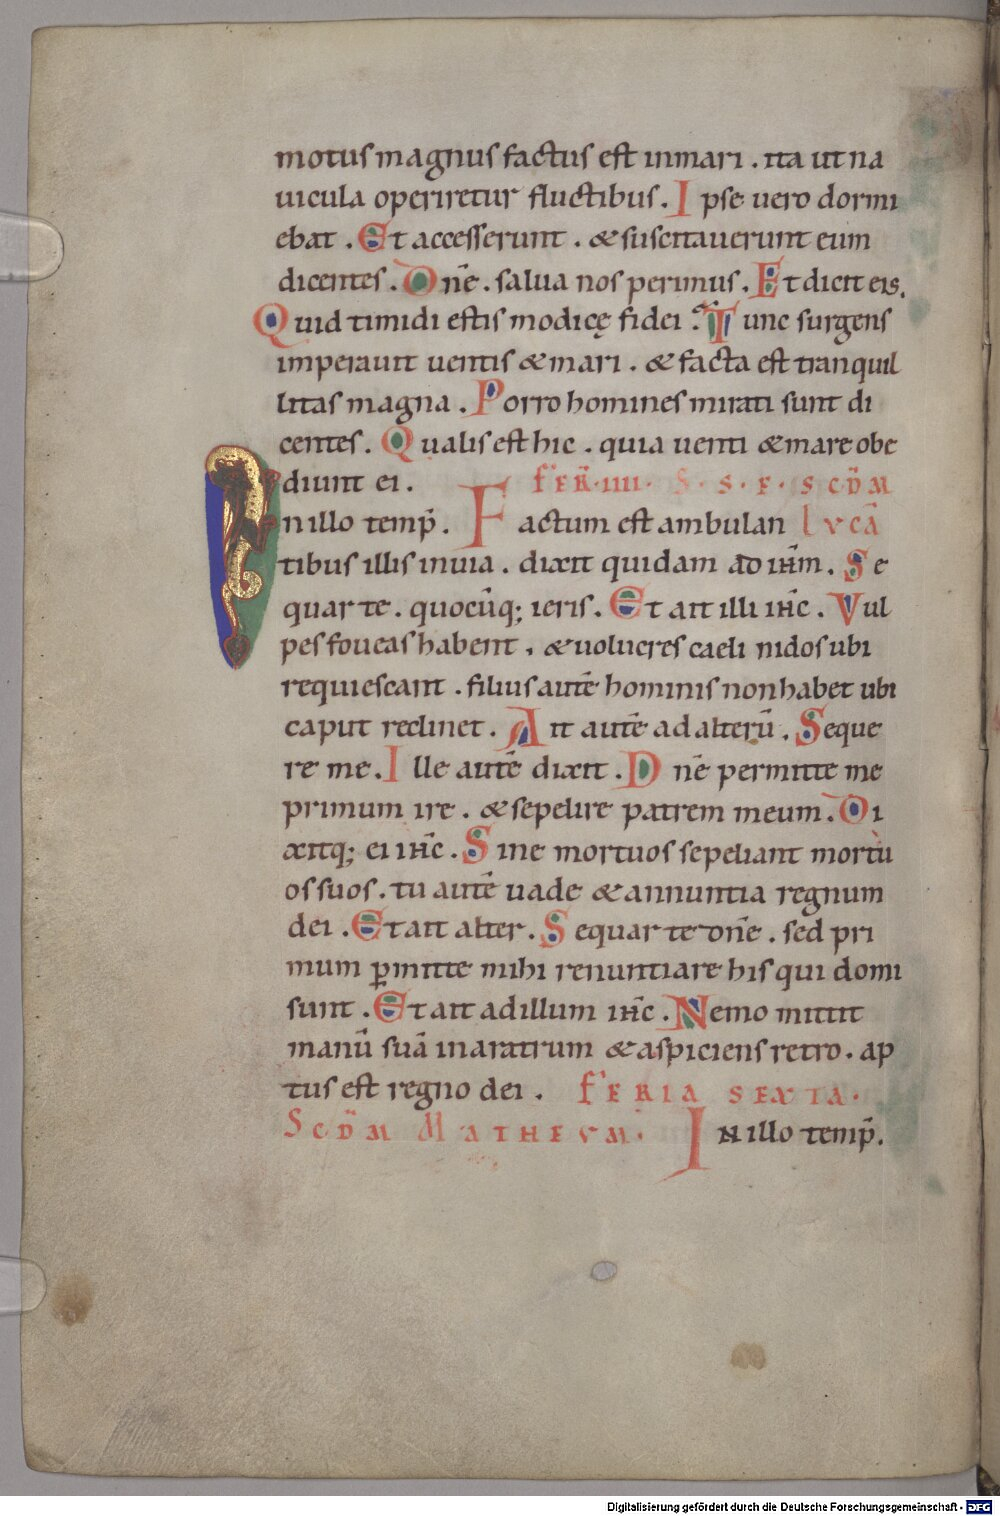 motus magnus factus est in mari . ita ut na
uicula operiretur fluctibus . Ipse uero dormi
ebat . Et accesserunt . & suscitauerunt eum
dicentes . Dn̄e . salua nos perimus . Et dicit eis .
Quid timidi estis modicę fidei ? Tunc surgens
imperauit uentis & mari . & facta est tranquil
litas magna . Porro homines mirati sunt di
centes . Qualis est hic . quia uenti & mare obe
diunt ei . FER̄ · IIII · S · S · E · SCD̄M
In illo temp̄ . Factum est ambulan LVCĀ
tibus illis in uia . dixit quidam ad ih̄m . Se
quar te . quocūq; ieris . Et ait illi ih̄c . Vul
pes foueas habent . & uolucres caeli nidos ubi
requiescant . filius autē hominis non habet ubi
caput reclinet . Ait autē ad alterū . Seque
re me . Ille autē dixit . Dn̄e permitte me
primum ire . & sepelire patrem meum . Di
xitq; ei ih̄c . Sine mortuos sepeliant mortu
os suos . tu autē uade & annuntia regnum
dei . Et ait alter . Sequar te dn̄e . sed pri
mum p̄mitte mihi renuntiare his qui domi
sunt . Et ait ad illum ih̄c . Nemo mittit
manū suā in aratrum & aspiciens retro . ap
tus est regno dei . FERIA SEXTA .
SCD̄M MATHEVM . In illo temp̄ .
Digitalisierung gefördert durch die Deutsche Forschungsgemeinschaft - DFG